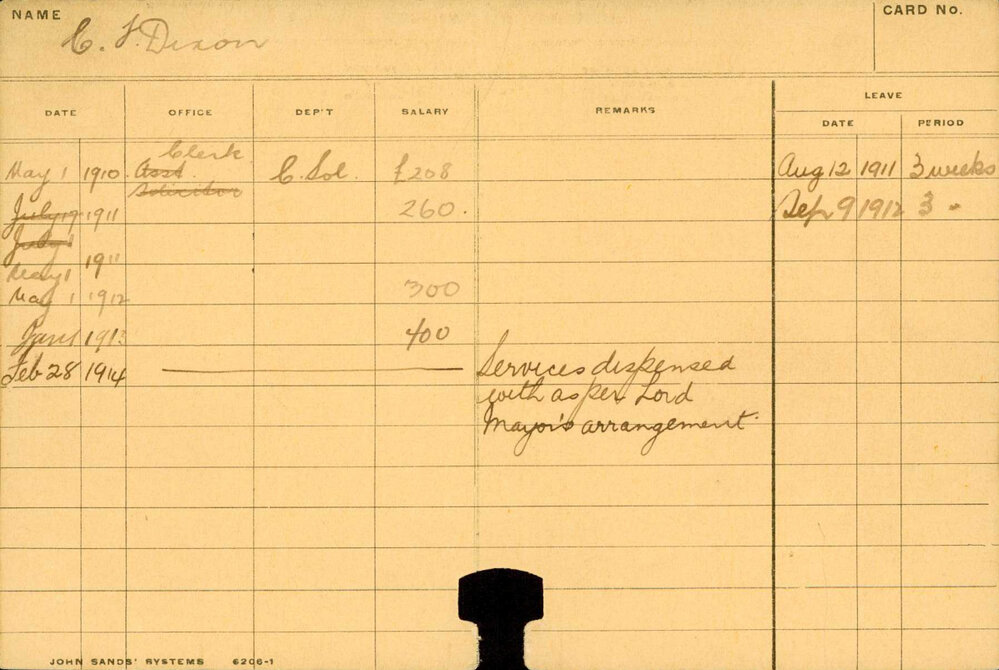 NAME C. F. Dixon CARD No.
LEAVE
DATE OFFICE DEP'T SALARY REMARKS DATE PERIOD
Clerk
May 1 1910 Asst. C. Sol. £208 Aug 12 1911 3 weeks
Solicitor
July 19 1911 260. Sep 9 1912 3 "
July 1
May 1 1911
May 1 1912 300
Jan 1 1913 400
Feb 28 1914 Services dispensed
with as per Lord
Mayor's arrangement.
JOHN SANDS' SYSTEMS 6206-1